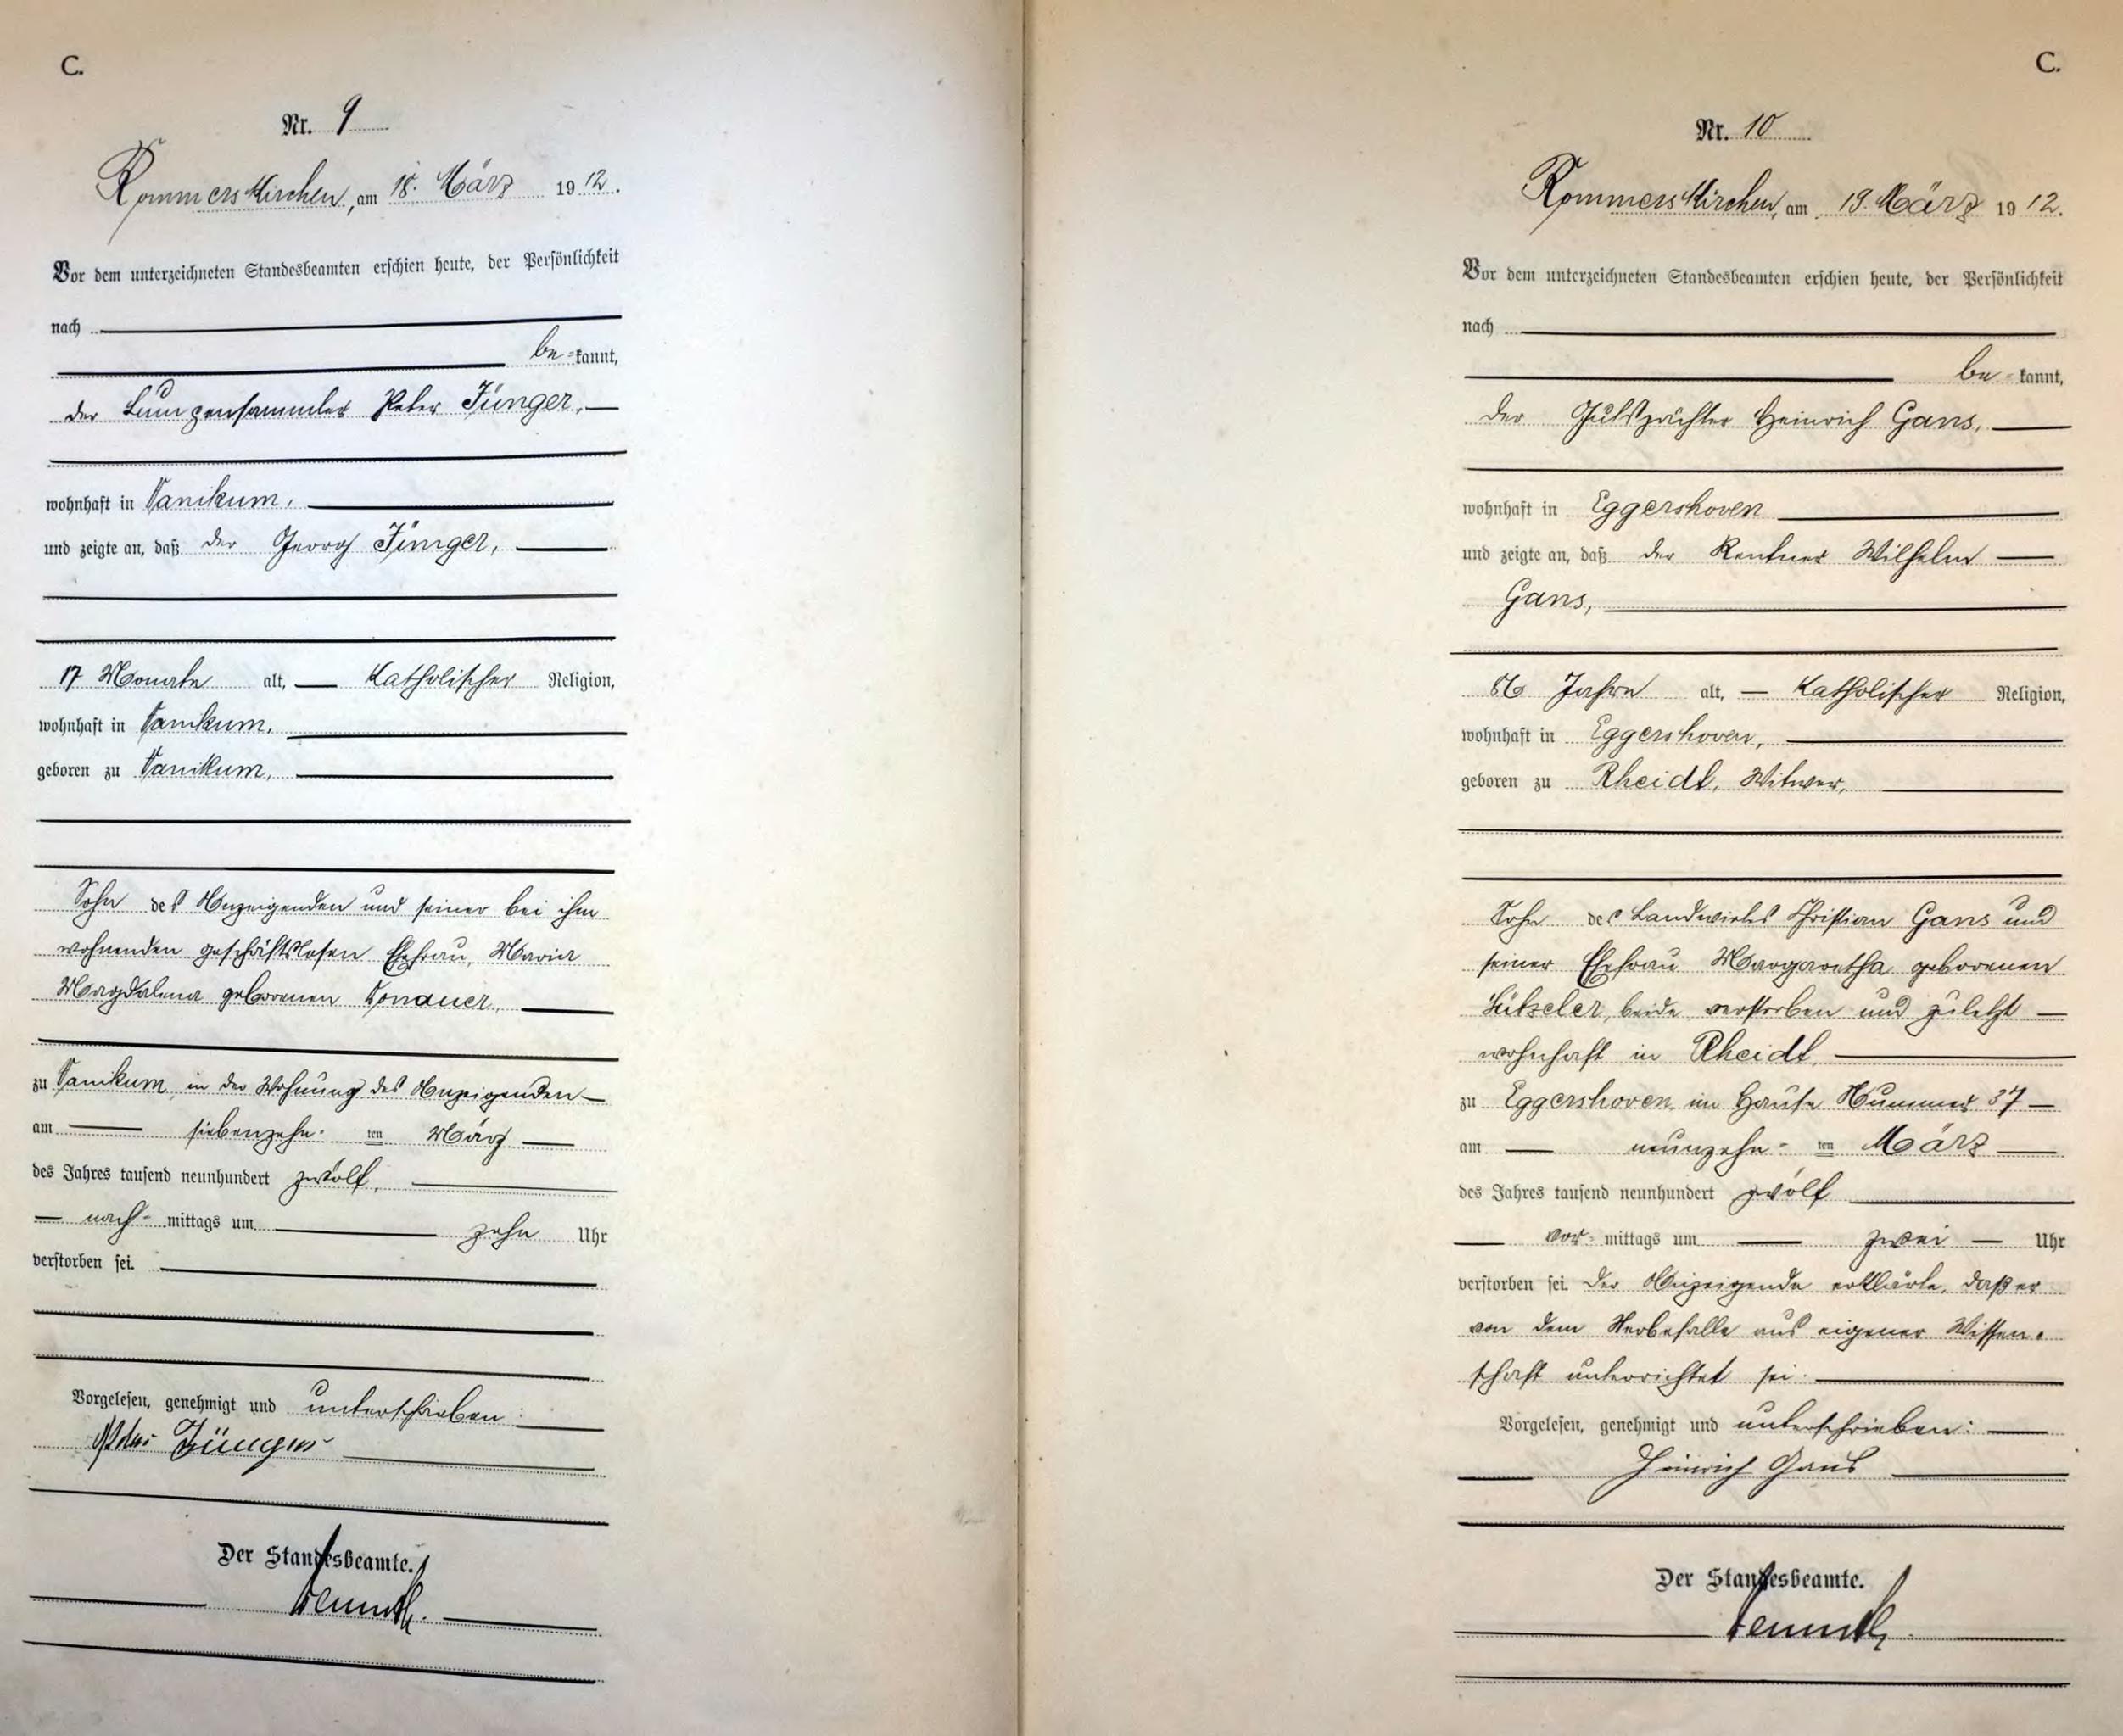 C.
Nr. 9
Rommerskirchen, am 18. März 1912.
Vor dem unterzeichneten Standesbeamten erschien heute, der Persönlichkeit
nach
be-kannt,
der Lumpensammler Peter Jünger,
wohnhaft in Vanikum,
und zeigte an, daß der Georg Jünger,
17 Monate alt, Katholischer Religion,
wohnhaft in Vanikum,
geboren zu Vanikum,
Sohn des Anzeigenden und seiner bei ihm
wohnenden geschäftslosen Ehefrau, Maria
Magdalena geborenen
zu Vanikum, in der Wohnung des Anzeigenden
am siebenzehn-ten März
des Jahres tausend neunhundert zwölf,
nach-mittags um zehn Uhr
verstorben sei.
Vorgelesen, genehmigt und unterschrieben:
Peter Jünger
Der Standesbeamte.
C.
Nr. 10
Rommerskirchen, am 19. März 1912.
Vor dem unterzeichneten Standesbeamten erschien heute, der Persönlichkeit
nach
be-kannt,
der Gutspächter Heinrich Gans,
wohnhaft in Eggershoven
und zeigte an, daß der Rentner Wilhelm
Gans,
86 Jahre alt, Katholischer Religion,
wohnhaft in Eggershoven,
geboren zu Rheidt, Witwer,
Sohn des Landwirtes Christian Gans und
seiner Ehefrau Margaretha geborenen
Hützeler, beide verstorben und zuletzt
wohnhaft in Rheidt,
zu Eggershoven im Hause Nummer 37
am neunzehn-ten März
des Jahres tausend neunhundert zwölf
vor-mittags um zwei Uhr
verstorben sei. Der Anzeigende erklärte, daß er
von dem Sterbefalle aus eigener Wissen-
schaft unterrichtet sei.
Vorgelesen, genehmigt und unterschrieben:
Heinrich Gans
Der Standesbeamte.